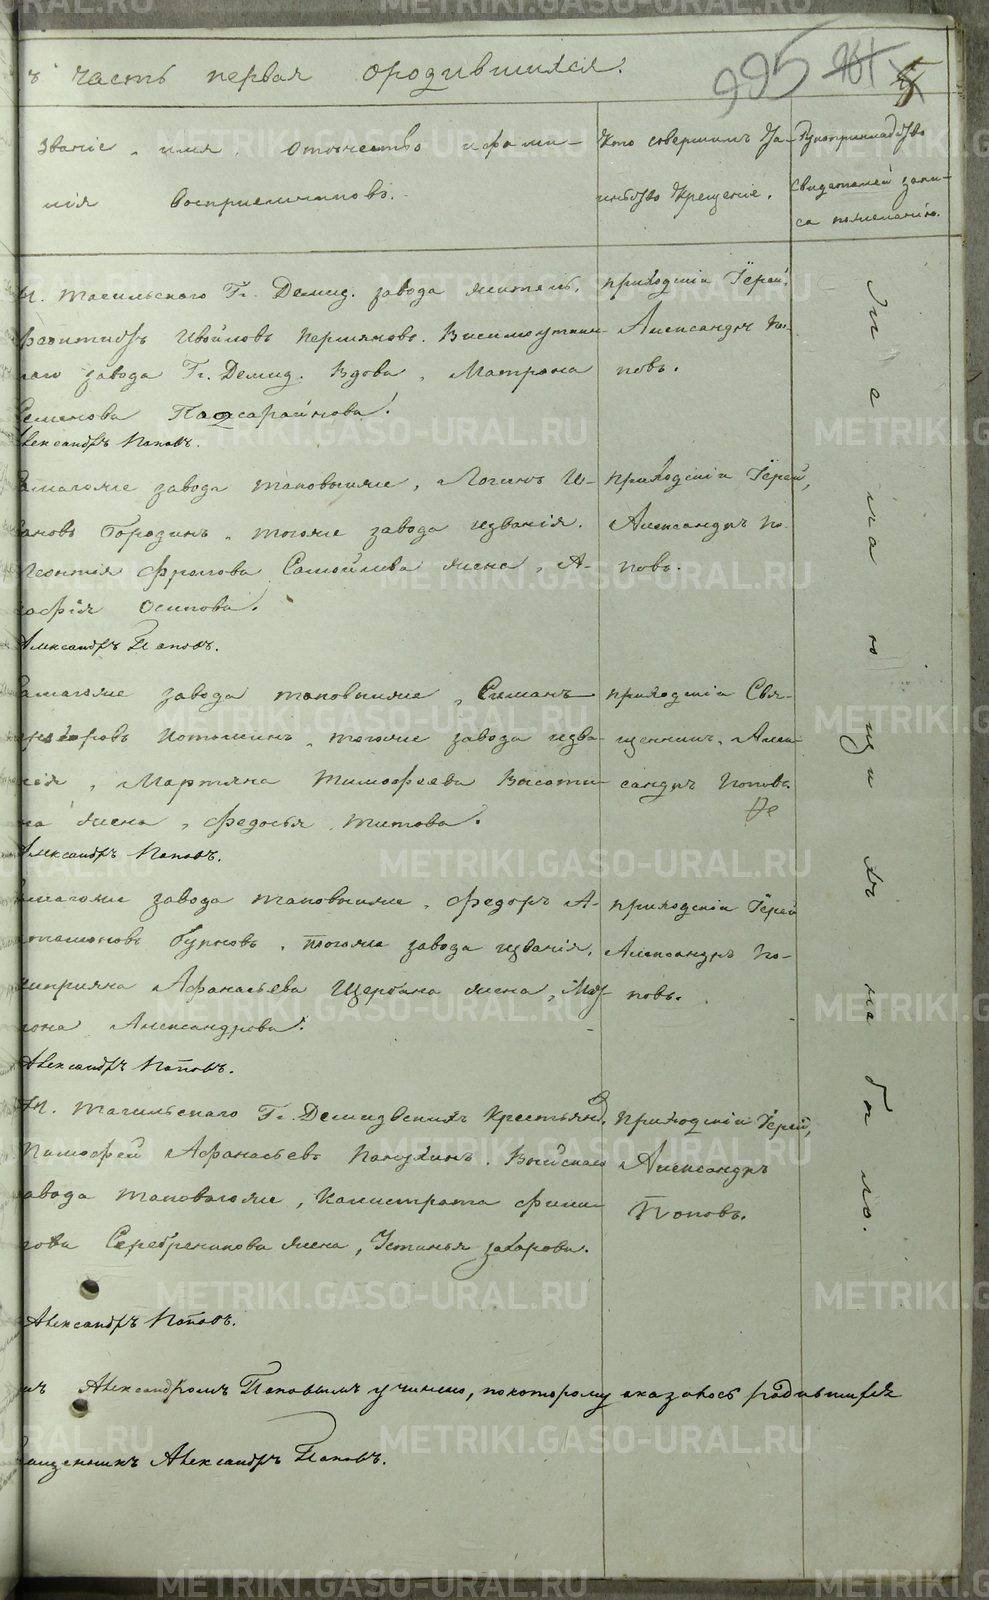 часть первая ородившихся.
995
Званіе, имя, Отечество ифами-
лія Воспріемниковъ.
Кто совершилъ Та-
инство Крещеніе.
Рукоприкладство
Свидетелей запи-
са пожеланію.
Н. Тагильскаго Гг. Демид. завода житель,
Ивойловъ Пермяковъ. Висимоуткин-
скаго завода Гг. Демид. Вдова, Матрона
Семенова
Александръ Поповъ.
приходскій Іерей,
Александръ По-
повъ.
завода таковыеже, Логинъ И-
вановъ Бородинъ, тогоже завода изванія.
Леонтія Фролова Самойлова жена, А-
гафія Осипова.
Александръ Поповъ.
приходскій Іерей,
Александръ По-
повъ.
завода таковыеже, Симанъ
Потошинъ, тогоже завода изва-
нія, Мартяна Тимофеева
жена, Федосья Титова.
Александръ Поповъ.
приходскій Свя-
щенникъ, Алек-
сандръ Поповъ.
завода таковыеже, Федоръ А-
ртамоновъ Бурковъ, тогоже завода изванія,
Киприяна Афанасьева Щербака жена, Мат-
рона Александрова.
Александръ Поповъ.
приходскій Іерей
Александръ По-
повъ.
Н. Тагильскаго Гг. Демидовскихъ Крестьянъ,
Тимофей Афанасьевъ Пачухинъ. Выйскаго
завода таковагоже, Калистрата Фили-
пова Серебреникова жена, Устинья захарова.
Александръ Поповъ.
Приходскій Іерей,
Александръ
Поповъ.
Желающихъ не было.
Александромъ Поповымъ учинено, покоторому оказалось родившихся
Священникъ Александръ Поповъ.
METRIKI.GASO-URAL.RU